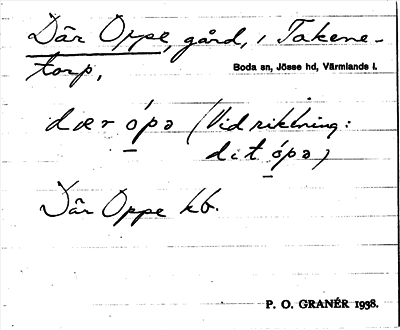 Där Oppe, gård, i Takene-
torp.
Boda sn, Jösse hd, Värmlands l.
dær ópə (Vid riktning:
dit ópə)
Där Oppe kb.
P. O. GRANÉR 1938.